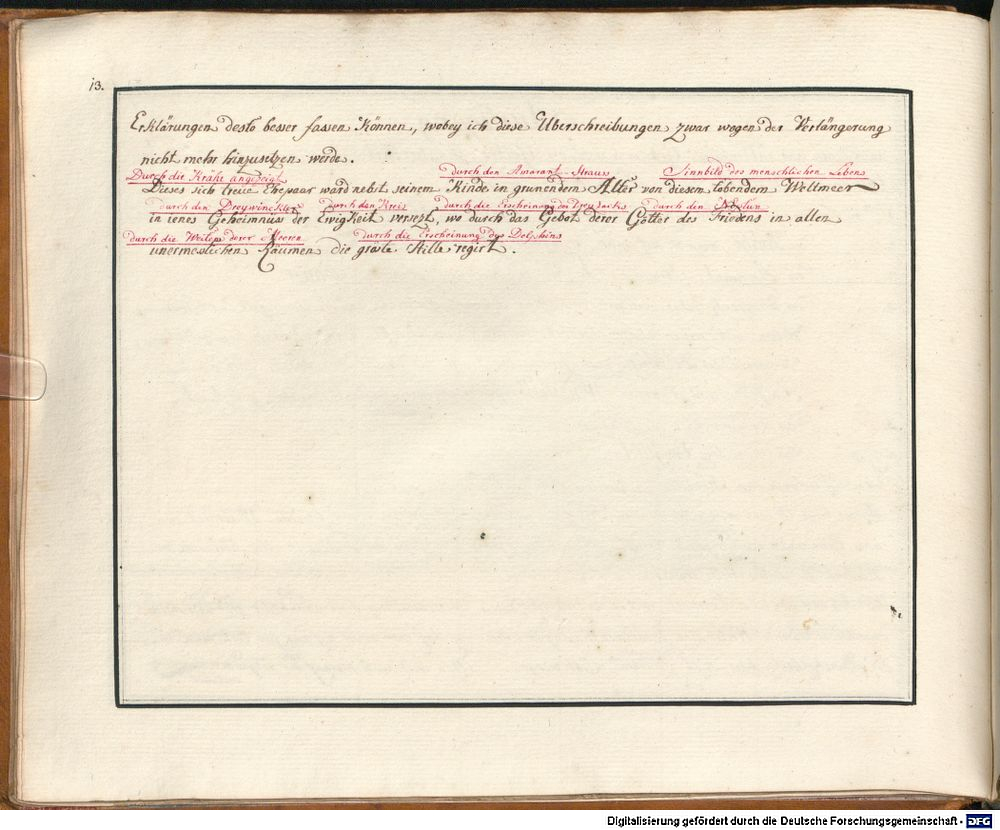 13.
Erklärungen desto besser fassen Können, wobey ich diese Überschreibungen zwar wegen der Verlängerung
nicht mehr hinzusetzen werde.
Durch die Krähe angezeigt durch den Amarant-Straus Sinnbild des menschlichen Lebens
Dieses sich treue Ehepaar ward nebst seinem Kinde in grunendem Alter von diesem tobendem Weltmeer
durch den Dreywinckler durch den Kreis durch die Erscheinung des Dreyzacks durch den
in ienes Geheimnuss der Ewigkeit versezt, wo durch das Gebot derer Götter des Friedens in allen
durch die Wellen derer Meeren durch die Erscheinung des Delphins
unermeslichen Räumen die gröste Stille regirt.
Digitalisierung gefördert durch die Deutsche Forschungsgemeinschaft - DFG